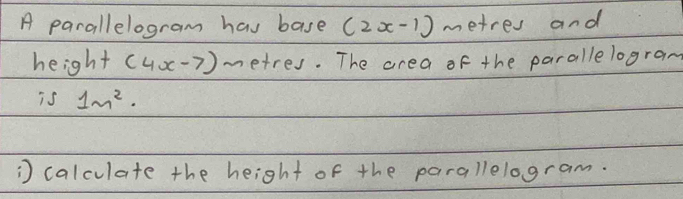 A parallelogram has base (2x-1) metres and
height (4x-7) metres. The area of the parallelogram
is 1m².
i) calculate the height of the parallelogram.